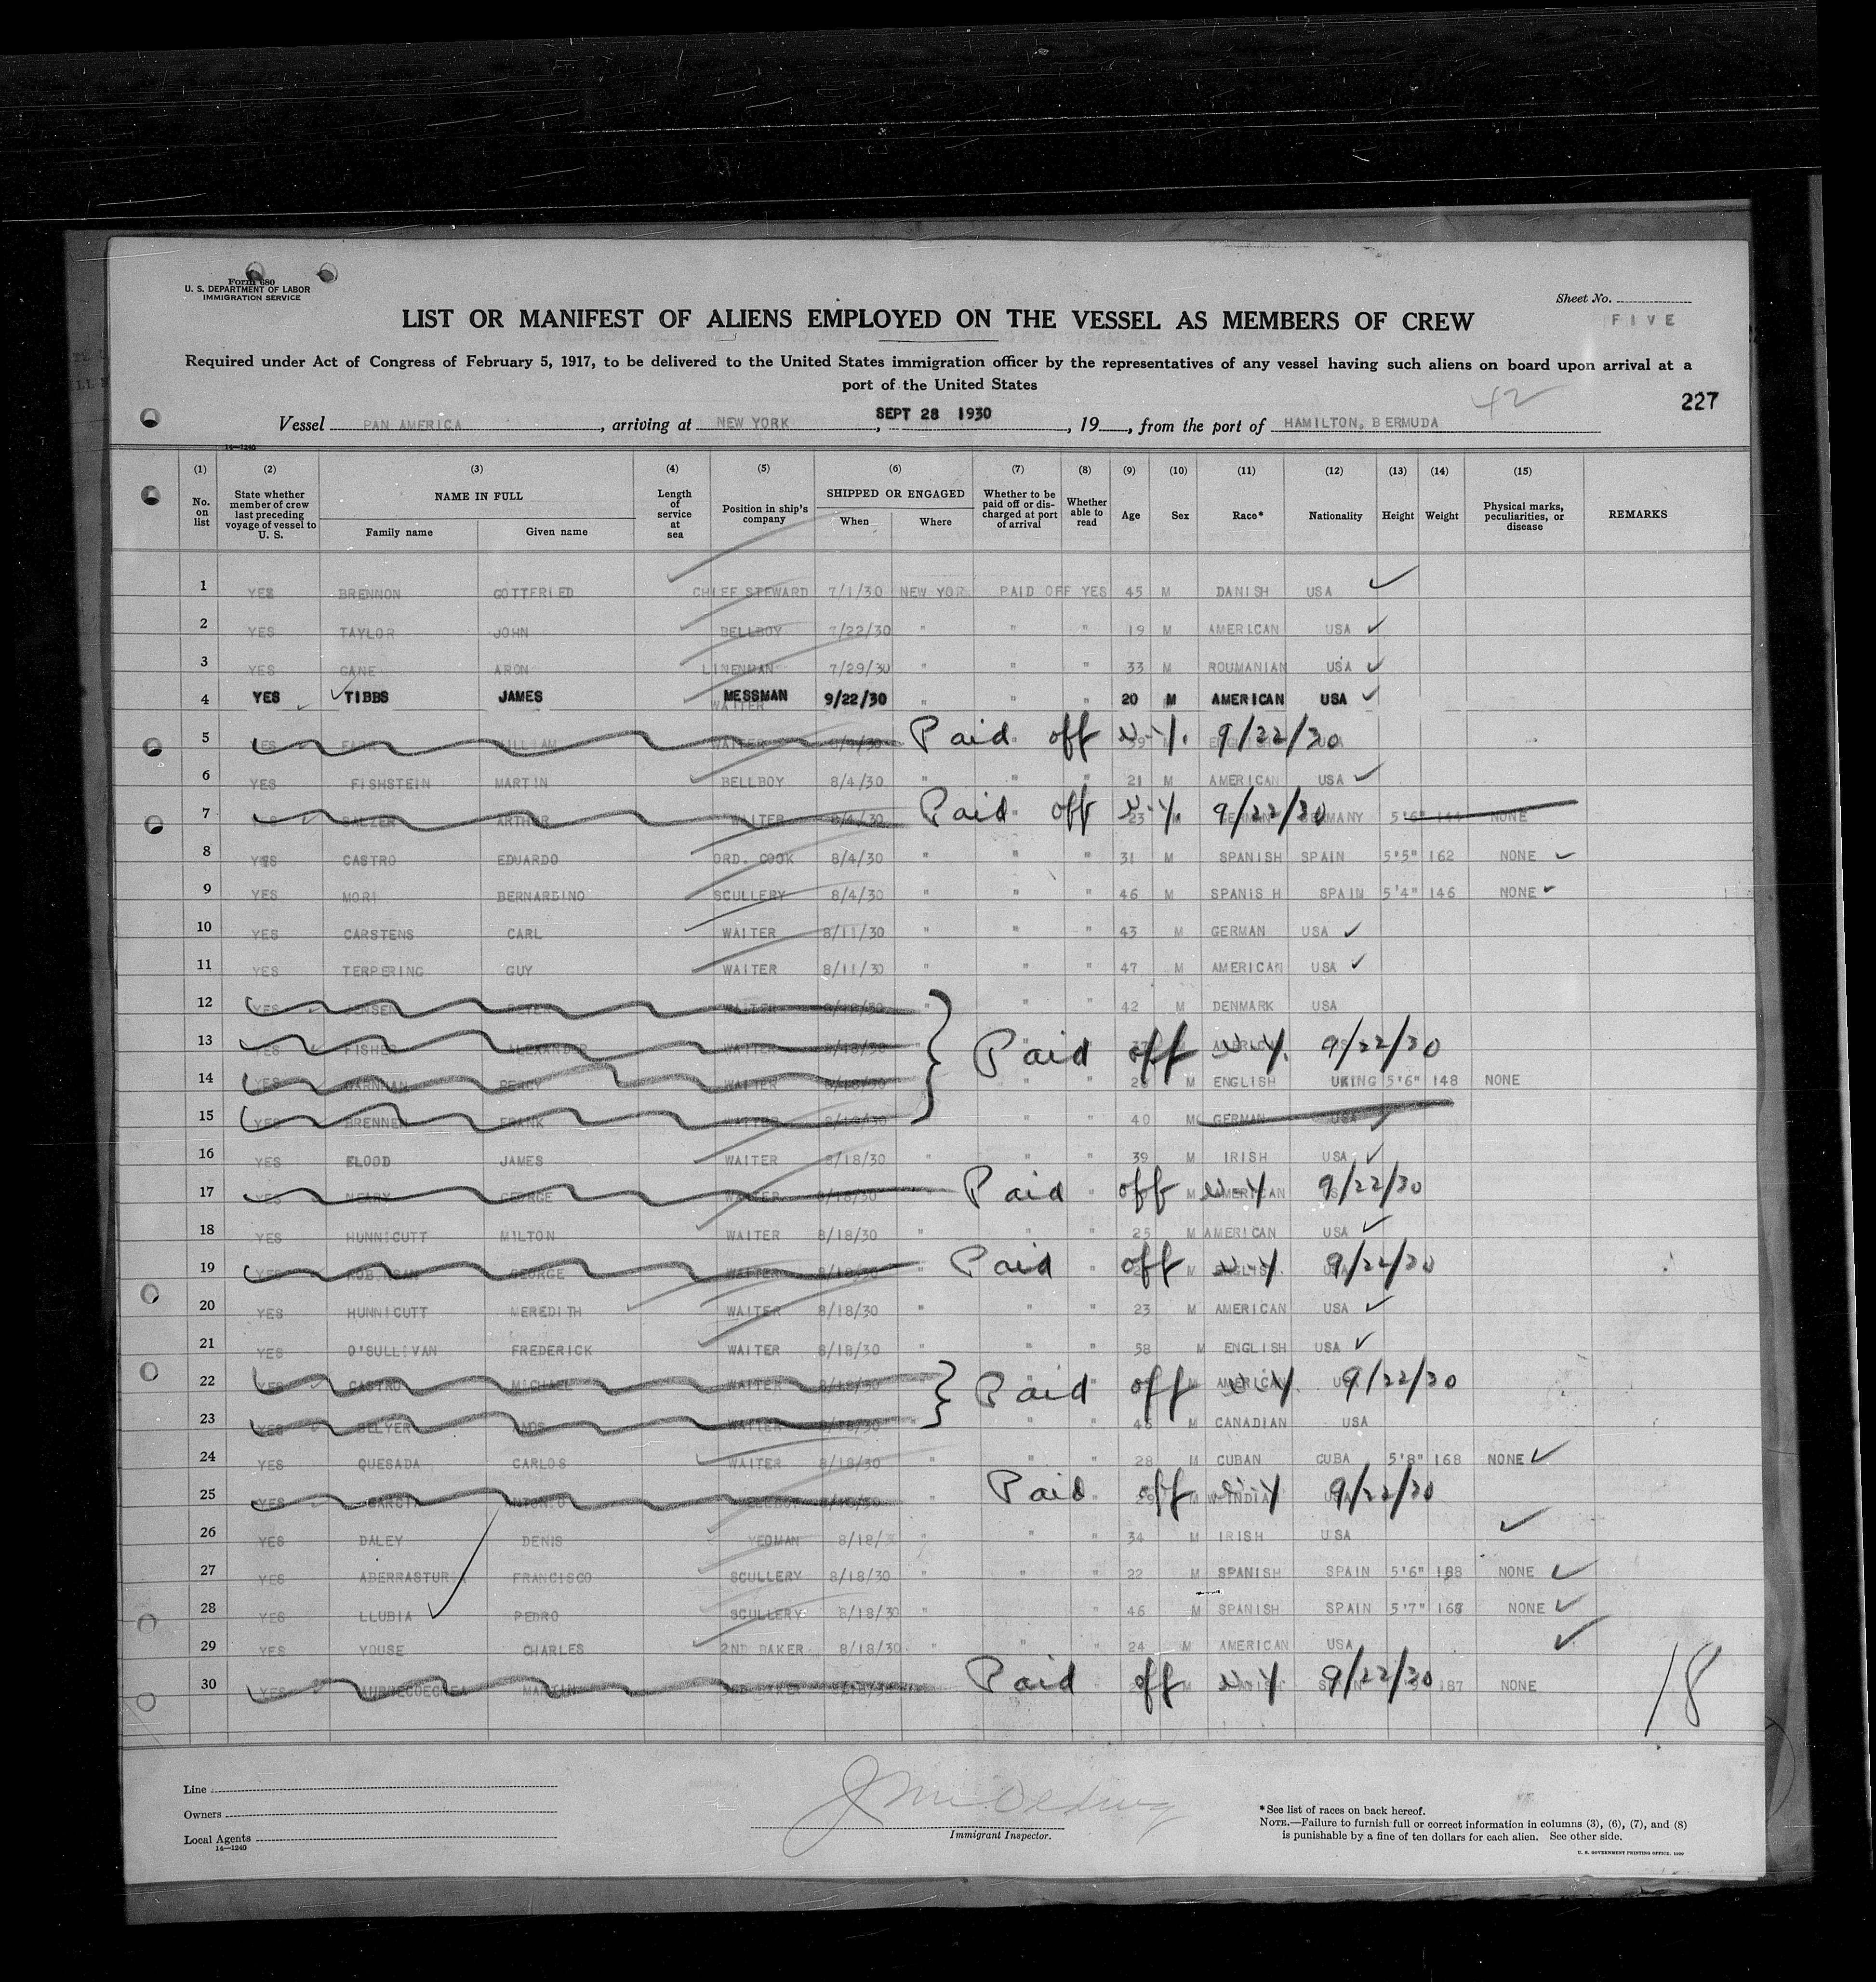 Form 680
U. S. DEPARTMENT OF LABOR
IMMIGRATION SERVICE
Sheet No.
FIVE
LIST OR MANIFEST OF ALIENS EMPLOYED ON THE VESSEL AS MEMBERS OF CREW
Required under Act of Congress of February 5, 1917, to be delivered to the United States immigration officer by the representatives of any vessel having such aliens on board upon arrival at a
port of the United States
42
227
Vessel PAN AMERICA, arriving at NEW YORK, SEPT 28 1930, 19, from the port of HAMILTON, BERMUDA
14—1240
(1) (2) (3) (4) (5) (6) (7) (8) (9) (10) (11) (12) (13) (14) (15)
No. on list State whether member of crew last preceding voyage of vessel to U. S. NAME IN FULL Family name Given name Length of service at sea Position in ship's company SHIPPED OR ENGAGED When Where Whether to be paid off or discharged at port of arrival Whether able to read Age Sex Race* Nationality Height Weight Physical marks, peculiarities, or disease REMARKS
1 YES BRENNON GOTTFRIED CHIEF STEWARD 7/1/30 NEW YOR PAID OFF YES 45 M DANISH USA ✓
2 YES TAYLOR JOHN BELLBOY 7/22/30 " " " 19 M AMERICAN USA ✓
3 YES GANE ARON LINENMAN 7/29/30 " " " 33 M ROUMANIAN USA ✓
4 YES TIBBS JAMES MESSMAN WAITER 9/22/30 " " " 20 M AMERICAN USA ✓
5 WAITER Paid off N.Y. 9/22/30
6 YES FISHSTEIN MARTIN BELLBOY 8/4/30 " " " 21 M AMERICAN USA ✓
7 YES ARTHUR WAITER 8/4/30 Paid off N.Y. 9/22/30 23 5'6" 144 NONE
8 YES CASTRO EDUARDO ORD. COOK 8/4/30 " " " 31 M SPANISH SPAIN 5'5" 162 NONE ✓
9 YES MORI BERNARDINO SCULLERY 8/4/30 " " " 46 M SPANIS H SPAIN 5'4" 146 NONE ✓
10 YES CARSTENS CARL WAITER 8/11/30 " " " 43 M GERMAN USA ✓
11 YES TERPERING GUY WAITER 8/11/30 " " " 47 M AMERICAN USA ✓
12 YES WAITER 8/18/30 " " " 42 M DENMARK USA
13 YES FISHER ALEXANDER WAITER 8/18/30 Paid off N.Y. 9/22/30
14 YES PERCY WAITER 8/18/30 " " M ENGLISH UKING 5'6" 148 NONE
15 YES BRENNER FRANK WAITER 8/18/30 " " 40 M GERMAN USA
16 YES FLOOD JAMES WAITER 8/18/30 " " " 39 M IRISH USA ✓
17 YES NEARY GEORGE WAITER 8/18/30 Paid off N.Y. 9/22/30
18 YES HUNNICUTT MILTON WAITER 8/18/30 " " " 25 M AMERICAN USA ✓
19 YES GEORGE WAITER 8/18/30 " Paid off N.Y. 9/22/30
20 YES HUNNICUTT MEREDITH WAITER 8/18/30 " " " 23 M AMERICAN USA ✓
21 YES O'SULLIVAN FREDERICK WAITER 8/18/30 " " " 58 M ENGLISH USA ✓
22 YES CASTRO MICHAEL WAITER 8/18/30 " Paid off N.Y. 9/22/30
23 YES WAITER 8/18/30 " " " M CANADIAN USA
24 YES QUESADA CARLOS WAITER 8/18/30 " " " 28 M CUBAN CUBA 5'8" 168 NONE ✓
25 YES " Paid off N.Y. 9/22/30
26 YES DALEY DENIS YEOMAN 8/18/ " " " 34 M IRISH USA ✓
27 YES FRANCISCO SCULLERY 8/18/30 " " " 22 M SPANISH SPAIN 5'6" 188 NONE ✓
28 YES LLUBIA PEDRO SCULLERY 8/18/30 " " " 46 M SPANISH SPAIN 5'7" 168 NONE ✓
29 YES YOUSE CHARLES 2ND BAKER 8/18/30 " " " 24 M AMERICAN USA ✓
30 YES Paid off N.Y. 9/22/30 187 NONE
18
Line
Owners
Local Agents
14—1240
Immigrant Inspector.
*See list of races on back hereof.
NOTE.—Failure to furnish full or correct information in columns (3), (6), (7), and (8)
is punishable by a fine of ten dollars for each alien. See other side.